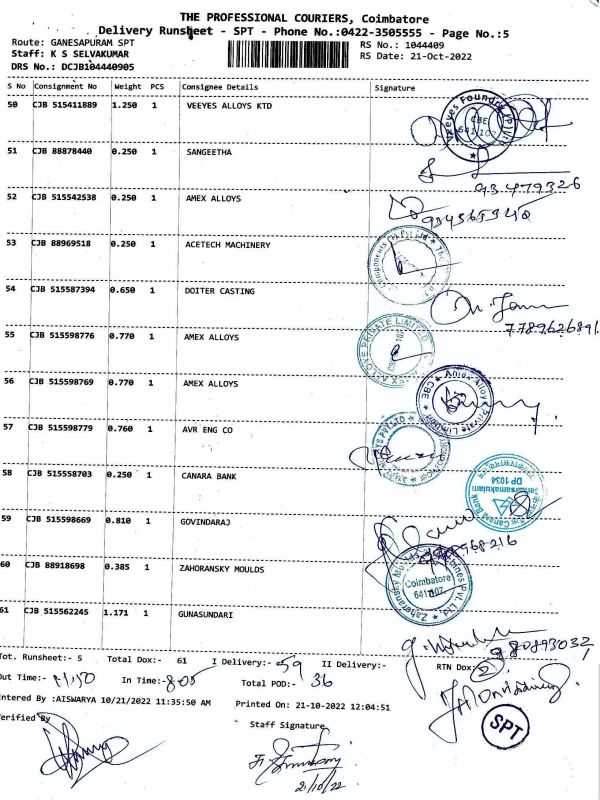 THE PROFESSIONAL COURIERS, Coimbatore
Delivery Runsheet - SPT - Phone No.:0422-3505555 - Page No.:5
Route: GANESAPURAM SPT
Staff: K S SELVAKUMAR
DRS No.: DCJB104440905
RS No.: 1044409
RS Date: 21-Oct-2022
S No Consignment No Weight PCS Consignee Details Signature
50 CJB 515411889 1.250 1 VEEYES ALLOYS KTD
Veeyes Foundry (P) Ltd
CBE
641 107
51 CJB 88878440 0.250 1 SANGEETHA
52 CJB 515542538 0.250 1 AMEX ALLOYS
53 CJB 88969518 0.250 1 ACETECH MACHINERY
54 CJB 515587394 0.650 1 DOITER CASTING
55 CJB 515598776 0.770 1 AMEX ALLOYS
PRIVATE LIMITED
56 CJB 515598769 0.770 1 AMEX ALLOYS
Amex Alloys Private Limited
CBE
57 CJB 515598779 0.760 1 AVR ENG CO
58 CJB 515558703 0.250 1 CANARA BANK
DP 1034
Canara Bank
59 CJB 515598669 0.810 1 GOVINDARAJ
60 CJB 88918698 0.385 1 ZAHORANSKY MOULDS
Coimbatore
641 107
61 CJB 515562245 1.171 1 GUNASUNDARI
Tot. Runsheet:- 5 Total Dox:- 61 I Delivery:- 59 II Delivery:- RTN Dox: 2
Out Time:- In Time:- 8:05 Total POD:- 36
Entered By :AISWARYA 10/21/2022 11:35:50 AM Printed On: 21-10-2022 12:04:51
Verified By Staff Signature
21/10/22
SPT